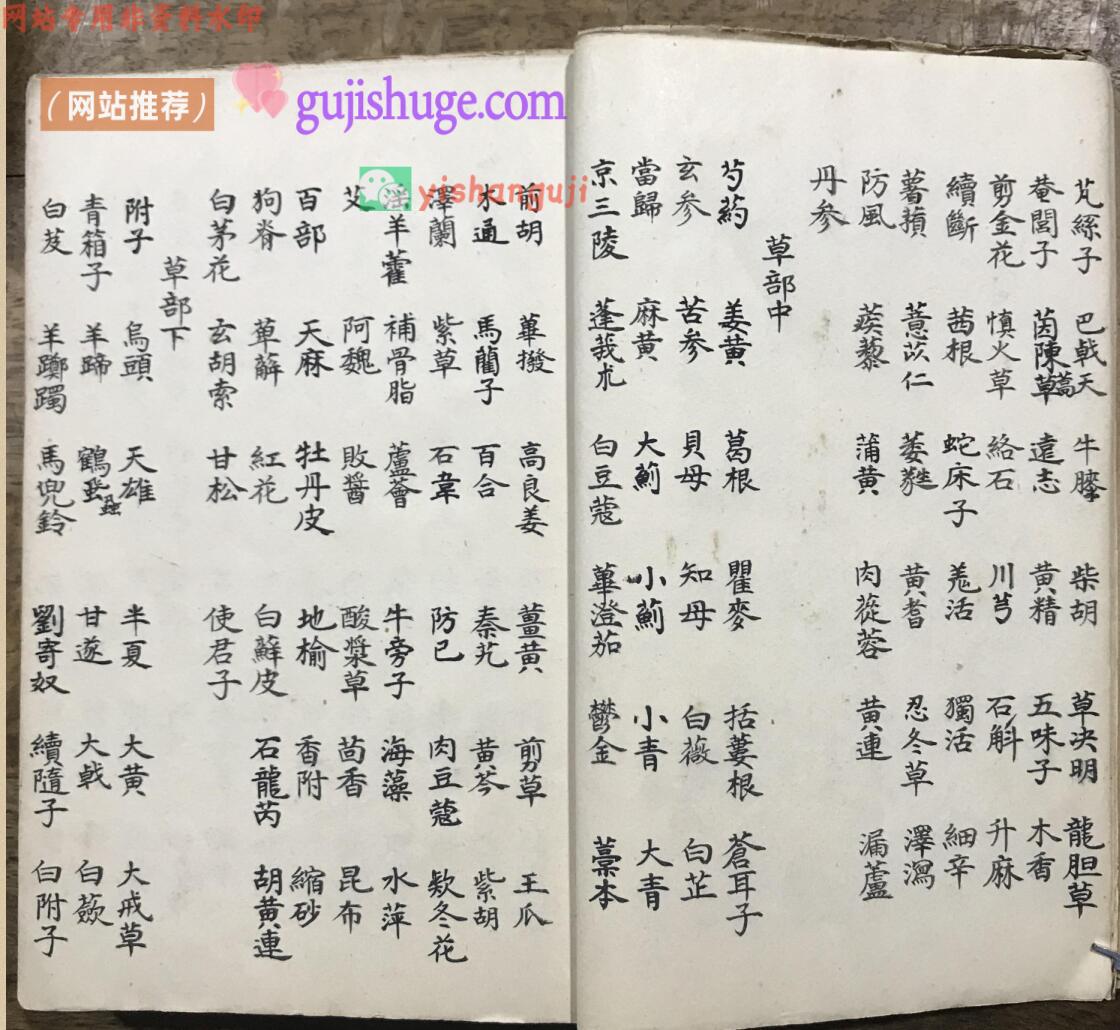 网站专用非资料水印
（网站推荐）
gujishuge.com
yishanguji
芃絲子 巴戟天 牛膝 柴胡 草决明 龍胆草
菴閭子 茵陳草蒿 遠志 黄精 五味子 木香
剪金花 慎火草 絡石 川芎 石斛 升麻
續斷 茜根 蛇床子 羗活 獨活 細辛
薯蕷 薏苡仁 萎蕤 黄耆 忍冬草 澤瀉
防風 蒺藜 蒲黄 肉蓯蓉 黄連 漏蘆
丹參
草部中
芍药 姜黄 葛根 瞿麥 括蔞根 蒼耳子
玄參 苦參 貝母 知母 白薇 白芷
當歸 麻黄 大薊 小薊 小青 大青
京三陵 蓬莪朮 白豆蔻 蓽澄茄 鬱金 藁本
前胡 蓽撥 高良姜 薑黄 剪草 王瓜
木通 馬藺子 百合 秦艽 黄芩 紫胡
澤蘭 紫草 石韋 防已 肉豆蔻 欵冬花
淫羊藿 補骨脂 蘆薈 牛旁子 海藻 水萍
艾 阿魏 敗醬 酸漿草 茴香 昆布
百部 天麻 牡丹皮 地榆 香附 縮砂
狗脊 萆薢 紅花 白蘚皮 石龍芮 胡黄連
白茅花 玄胡索 甘松 使君子
草部下
附子 烏頭 天雄 半夏 大黄 大戒草
青箱子 羊蹄 鶴虱 甘遂 大戟 白蘞
白芨 羊躑躅 馬兜鈴 劉寄奴 續隨子 白附子